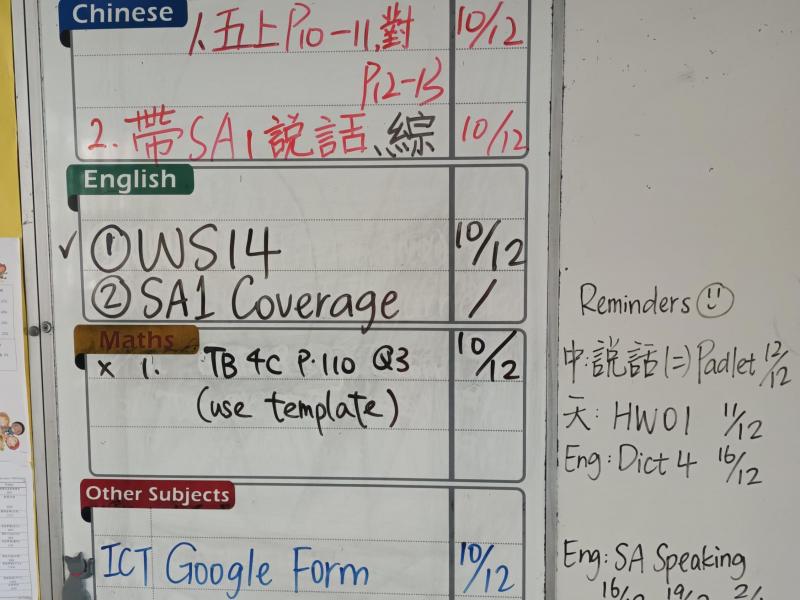 Chinese
1. 五上P10-11, 對 10/12
P12-13
2. 帶SA1說話、綜 10/12
English
✓ ① WS14 10/12
② SA1 Coverage /
Maths
x 1. TB 4C P.110 Q3 10/12
(use template)
Other Subjects
ICT Google Form 10/12
Reminders
中:說話(二)Padlet 12/12
天: HW01 11/12
Eng: Dict 4 16/12
Eng: SA Speaking